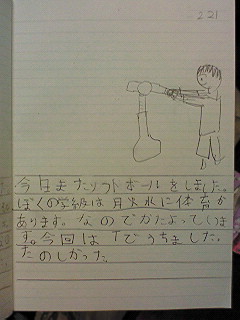 221
今日またソフトボールをしました。
ぼくの学級は月火水に体育が
あります。なのでかたよっていま
す。今回はTでうちました。
たのしかった。